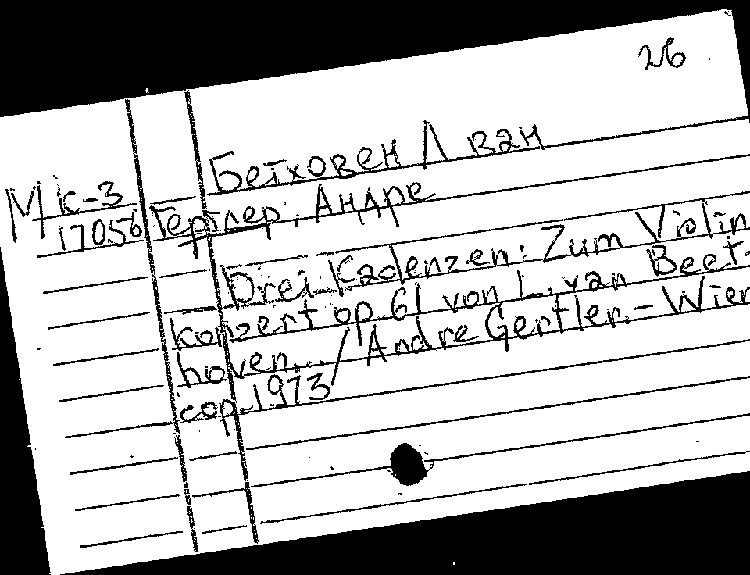 26
Бетховен Л ван
М к-3
17056 Гертлер, Андре
Drei Kadenzen: Zum Violin
konzert op 61 von L. van Beet-
hoven... / Andre Gertler. - Wien
cop. 1973